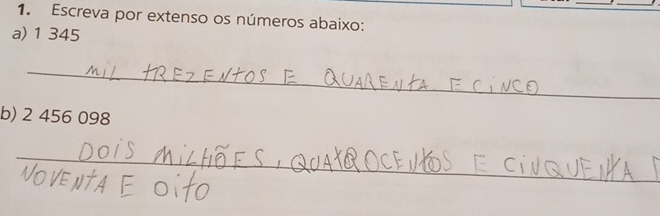 1. Escreva por extenso os números abaixo:
a) 1 345
MIL TREZENTOS E QUARENTA E CINCO
b) 2 456 098
DOIS MILHÕES, QUATROCENTOS E CINQUENTA E
NOVENTA E OITO